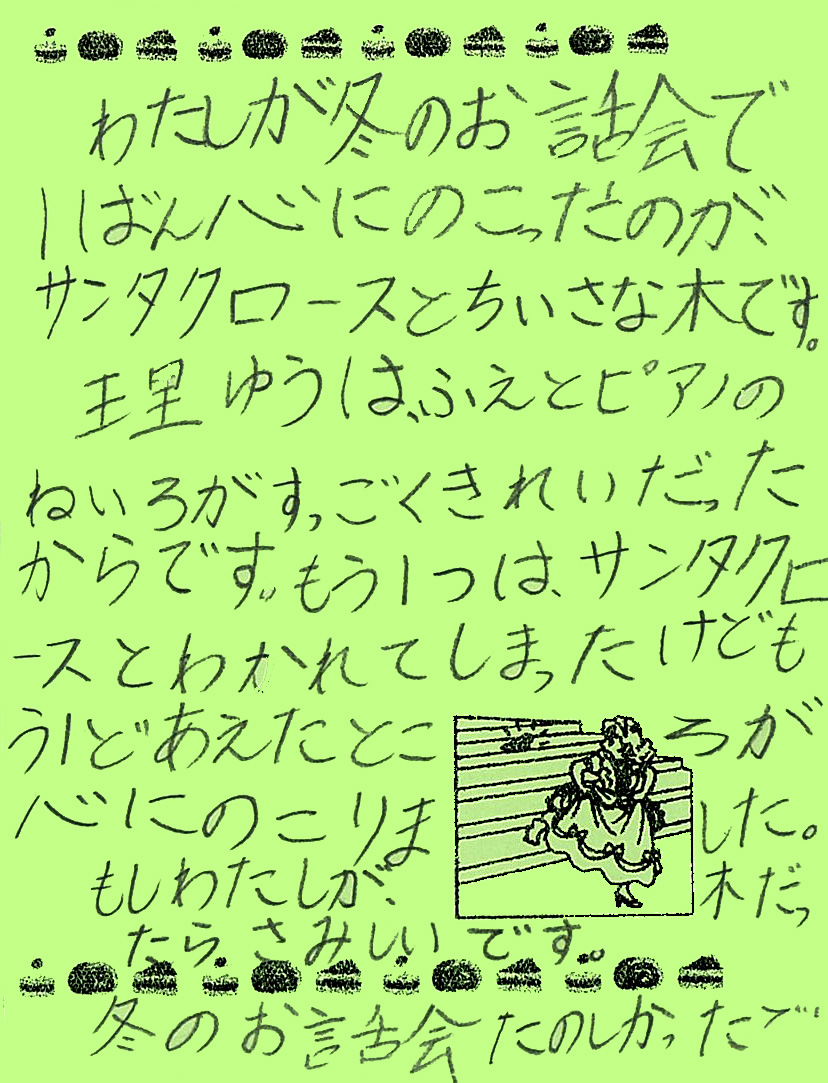 わたしが冬のお話会で
1ばん心にのこったのが、
サンタクロースとちいさな木です。
王里ゆうは、ふえとピアノの
ねいろがすっごくきれいだった
からです。もう1つは、サンタクロ
ースとわかれてしまったけども
う1どあえたところが
心にのこりました。
もしわたしが、木だっ
たらさみしいです。
冬のお話会たのしかったで